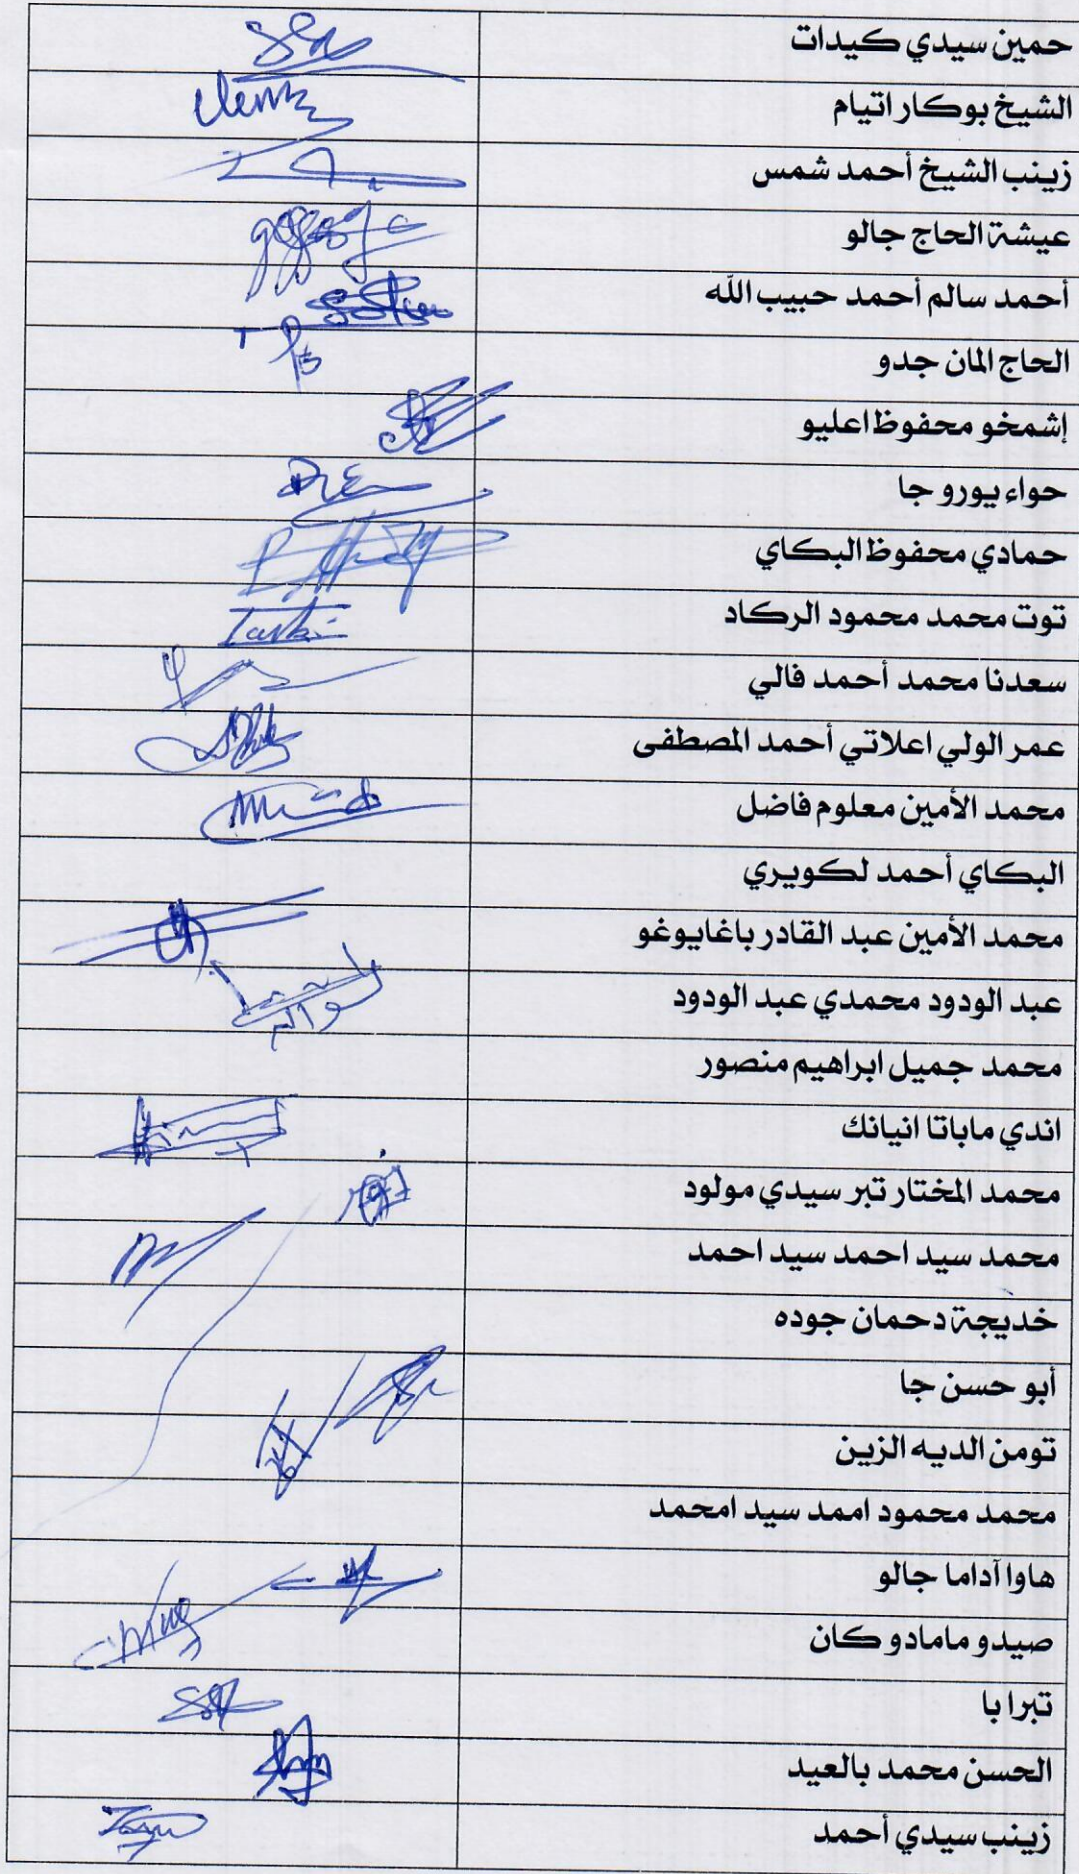 حمين سيدي كيدات
الشيخ بوكار اتيام
زينب الشيخ أحمد شمس
عيشة الحاج جالو
أحمد سالم أحمد حبيب الله
الحاج المان جدو
إشمخو محفوظ اعليو
حواء يورو جا
حمادي محفوظ البكاي
توت محمد محمود الركاد
سعدنا محمد أحمد فالي
عمر الولي اعلاتي أحمد المصطفى
محمد الأمين معلوم فاضل
البكاي أحمد لكويري
محمد الأمين عبد القادر باغايوغو
عبد الودود محمدي عبد الودود
محمد جميل ابراهيم منصور
اندي ماباتا انيانك
محمد المختار تبر سيدي مولود
محمد سيد احمد سيد احمد
خديجة دحمان جوده
أبو حسن جا
تومن الديه الزين
محمد محمود اممد سيد امحمد
هاوا آداما جالو
صيدو مامادو كان
تبرا با
الحسن محمد بالعيد
زينب سيدي أحمد